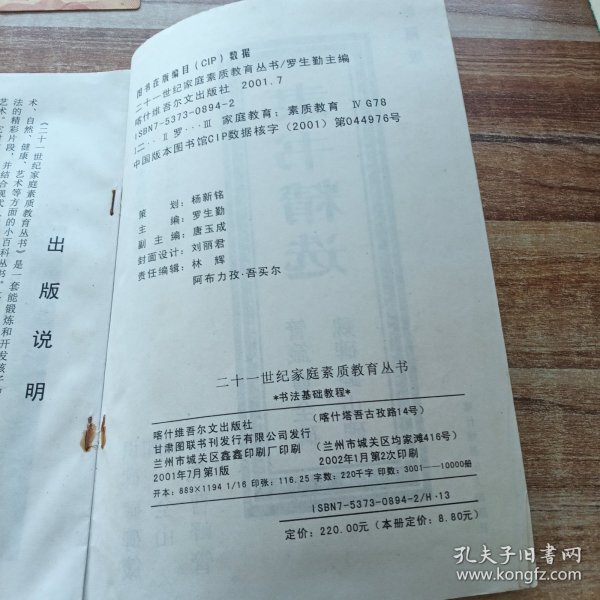 图书在版编目(CIP)数据
二十一世纪家庭素质教育丛书/罗生勤主编
喀什维吾尔文出版社 2001.7
ISBN7-5373-0894-2
I二… II罗… III 家庭教育; 素质教育 IV G78
中国版本图书馆CIP数据核字(2001)第044976号
策 划: 杨新铭
主 编: 罗生勤
副 主 编: 唐玉成
封面设计: 刘丽君
责任编辑: 林 辉
阿布力孜·吾买尔
二十一世纪家庭素质教育丛书
*书法基础教程*
喀什维吾尔文出版社 (喀什塔吾古孜路14号)
甘肃图联书刊发行有限公司发行
兰州市城关区鑫鑫印刷厂印刷 (兰州市城关区均家滩416号)
2001年7月第1版 2002年1月第2次印刷
开本: 889×1194 1/16 印张: 116.25 字数: 220千字 印数: 3001——10000册
ISBN7-5373-0894-2/H·13
定价: 220.00元(本册定价: 8.80元)
出版说明
《二十一世纪家庭素质教育丛书》是一套能锻炼和开发孩子
术、自然、健康、艺术等方面的小百科丛书。
法的精彩片段,并结合现代
孔夫子旧书网
www.kongfz.com